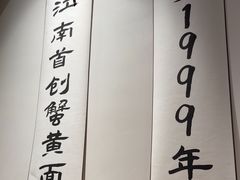 1999年
江南首创蟹黄面